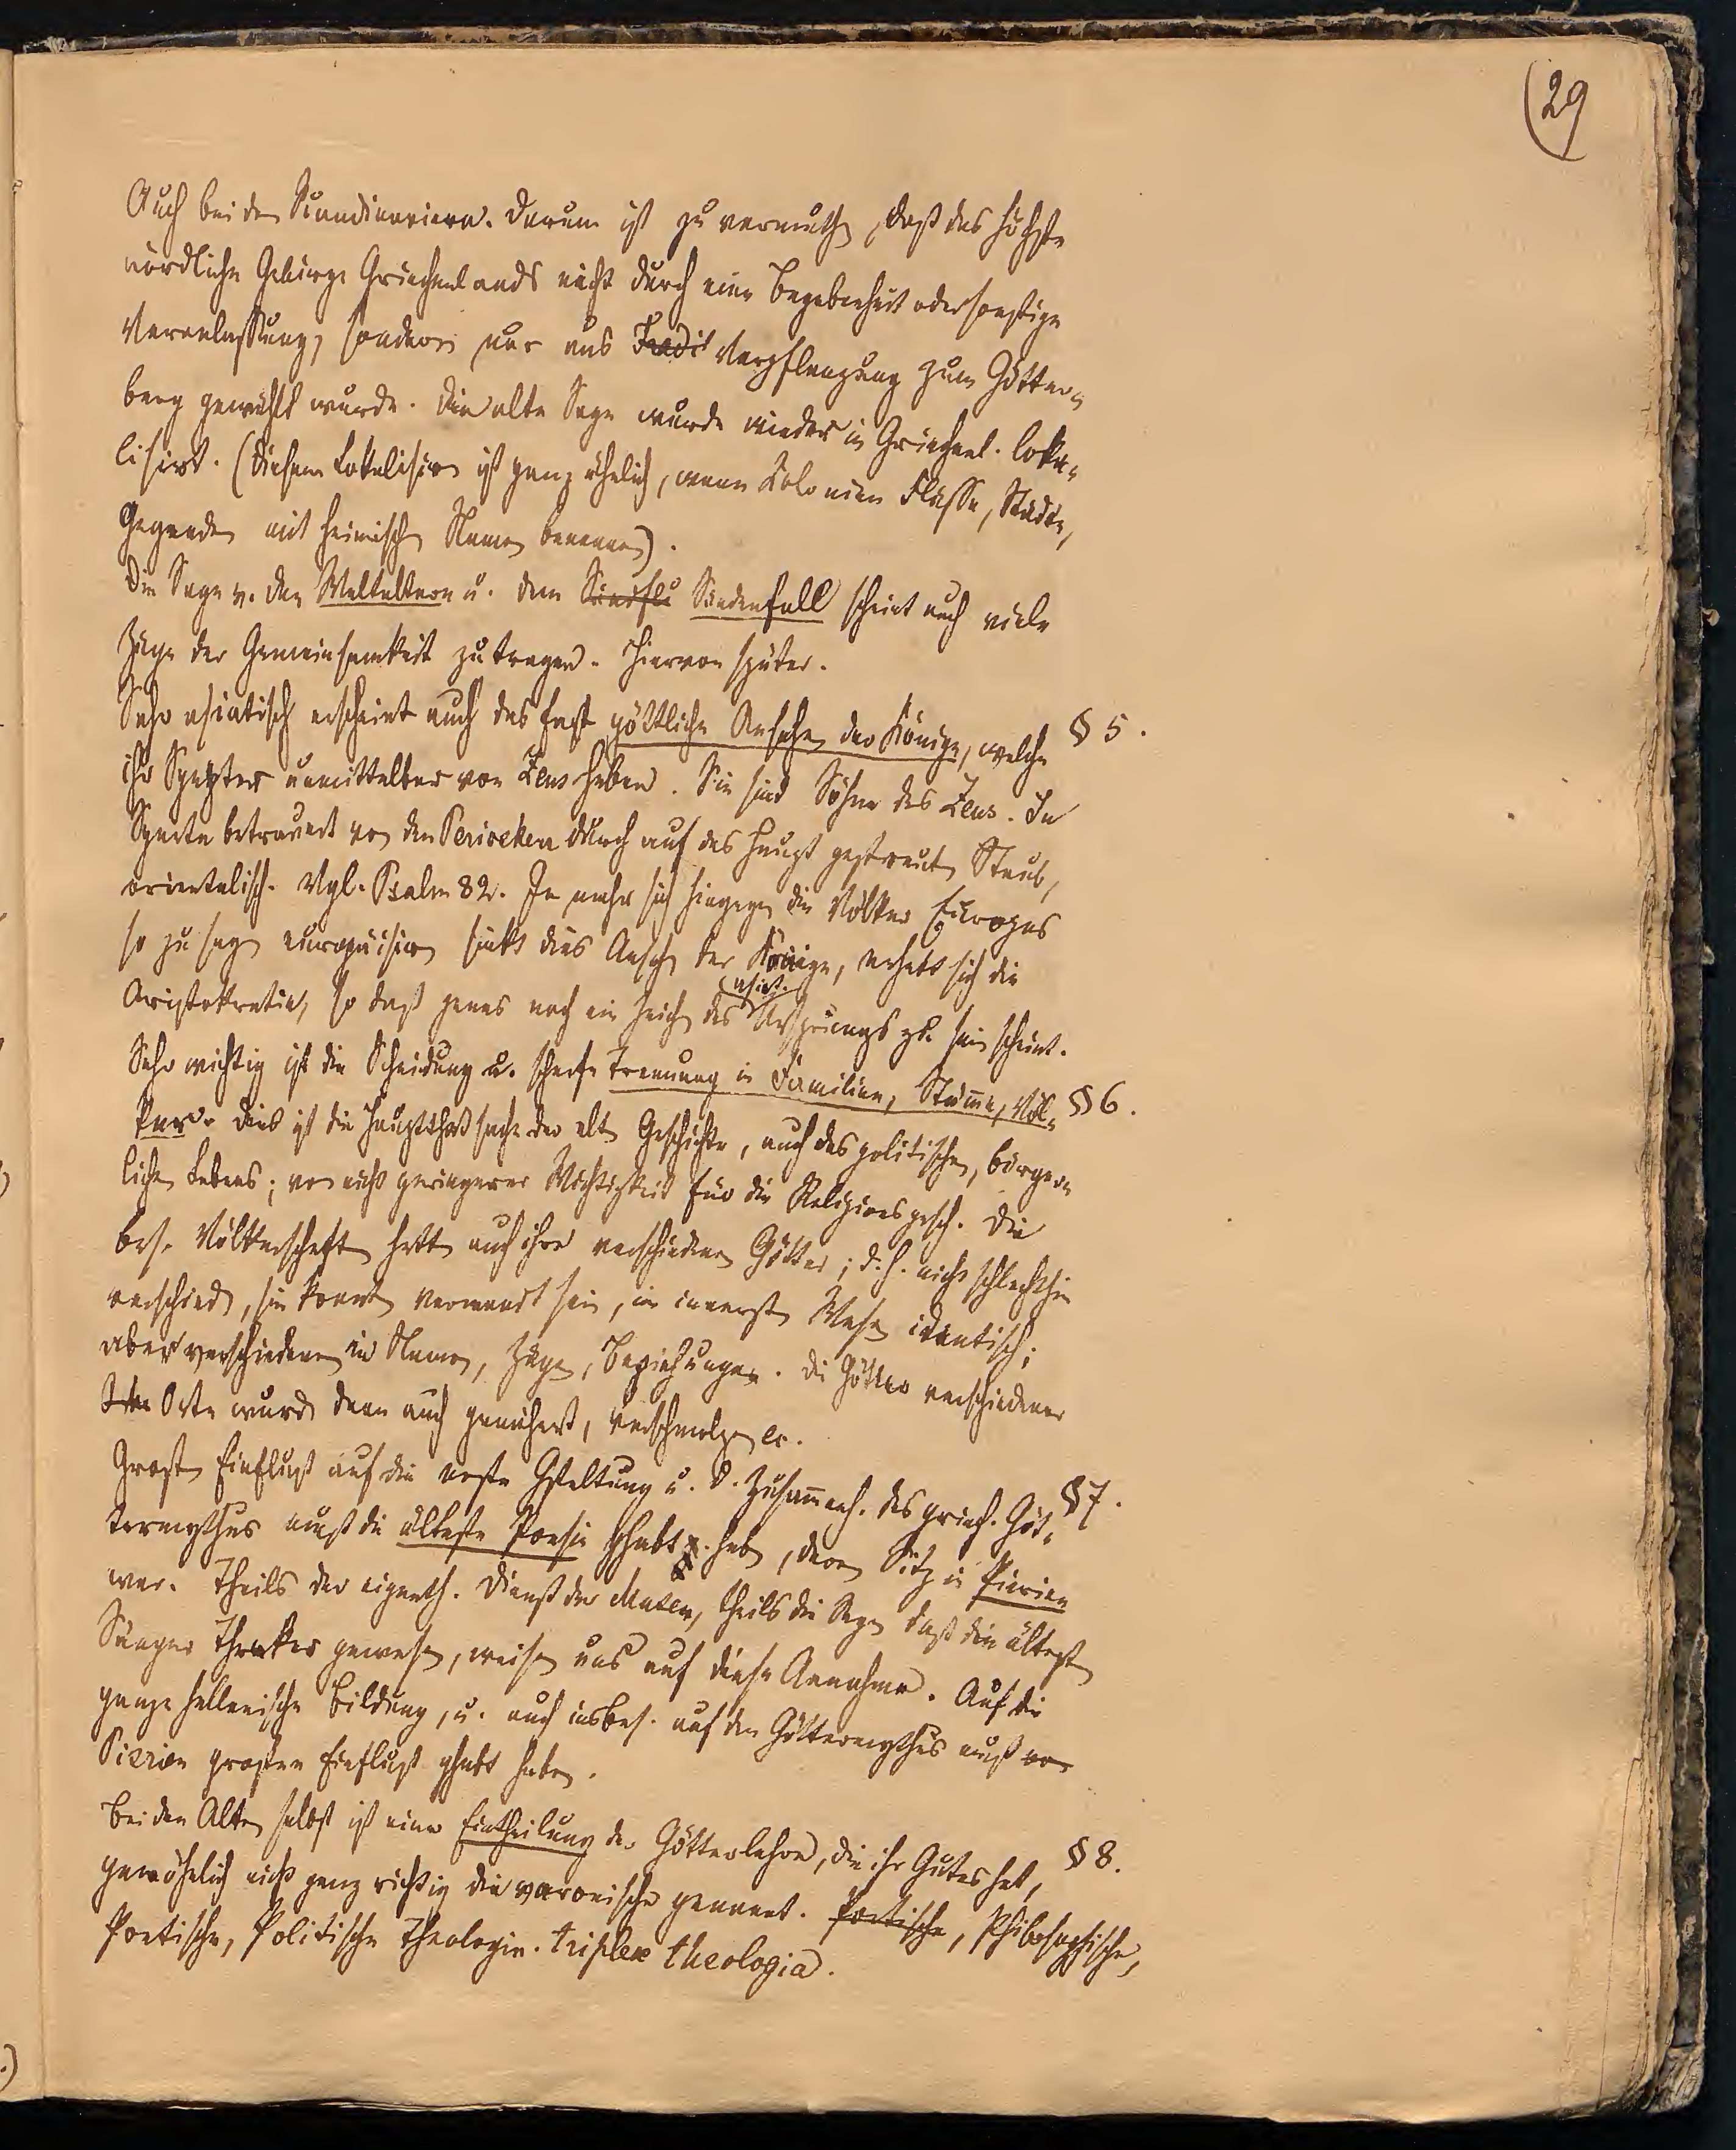 (29
Auch bei den Scandinaviern. Darum ist zu vermuthen, daß das höchste
nördliche Gebirge Griechenlands nicht durch eine Begebenheit oder sonstige
Veranlassung, sondern nur aus Tradit Verpflanzung zum Götter=
berg gewählt wurde. Die alte Sage wurde wieder in Griechenl. loka=
lisirt. (Diesem Lokalisiren ist ganz ähnlich, wenn Kolonien Flüsse, Städte,
Gegenden mit heimischen Namen benennen).
Die Sage v. den Weltaltern u. dem Sündflu Sündenfall scheint auch viele
Züge der Gemeinsamkeit zu tragen. Hiervon später.
Sehr asiatisch erscheint auch das fast göttliche Ansehen der Könige, welche § 5.
ihr Szepter unmittelbar von Zeus haben. Sie sind Söhne des Zeus. In
Sparta betrauert von den Perioeken durch auf das Haupt gestreuten Staub,
orientalisch. Vgl. Psalm 82. Je mehr sich hingegen die Völker Europas
so zu sagen europäisiren sinkt dies Ansehen der Könige, erhebt sich die
Aristokratie, so daß jenes noch ein Zeichen des asiat. Ursprungs zu sein scheint.
Sehr wichtig ist die Scheidung u. scharfe Trennung in Familien, Stämme, Völ= § 6.
ker. Dies ist die Hauptthatsache der alten Geschichte, auch des politischen, bürger=
lichen Lebens; von nicht geringerer Wichtigkeit für die Religionsgesch. Die
bes. Völkerschaften hatten auch ihre verschiedenen Götter; d. h. nicht schlechthin
verschieden, sie konnten verwandt sein, im innersten Wesen identisch;
aber verschieden in Namen, Zügen, Beziehungen. Die Götter verschiedener
Orte wurden dann auch genähert, verschmolzen etc.
Großen Einfluß auf die erste Gestaltung u. d. Zusammenh. des griech. Göt= § 7.
termythus muß die älteste Poesie gehabt haben, deren Sitz in Pierien
war. Theils der eigenth. Dienst der Musen, theils die Sage daß die ältesten
Sänger Thraker gewesen, weisen uns auf diese Annahme. Auf die
ganze hellenische Bildung, u. auch insbes. auf den Göttermythus muß von
Pierien großer Einfluß gehabt haben.
Bei den Alten selbst ist eine Eintheilung der Götterlehre, die ihr Gutes hat, § 8.
gewöhnlich nicht ganz richtig die varronische genannt. Poetische, Philosophische,
Poetische, Politische Theologie. triplex theologia.